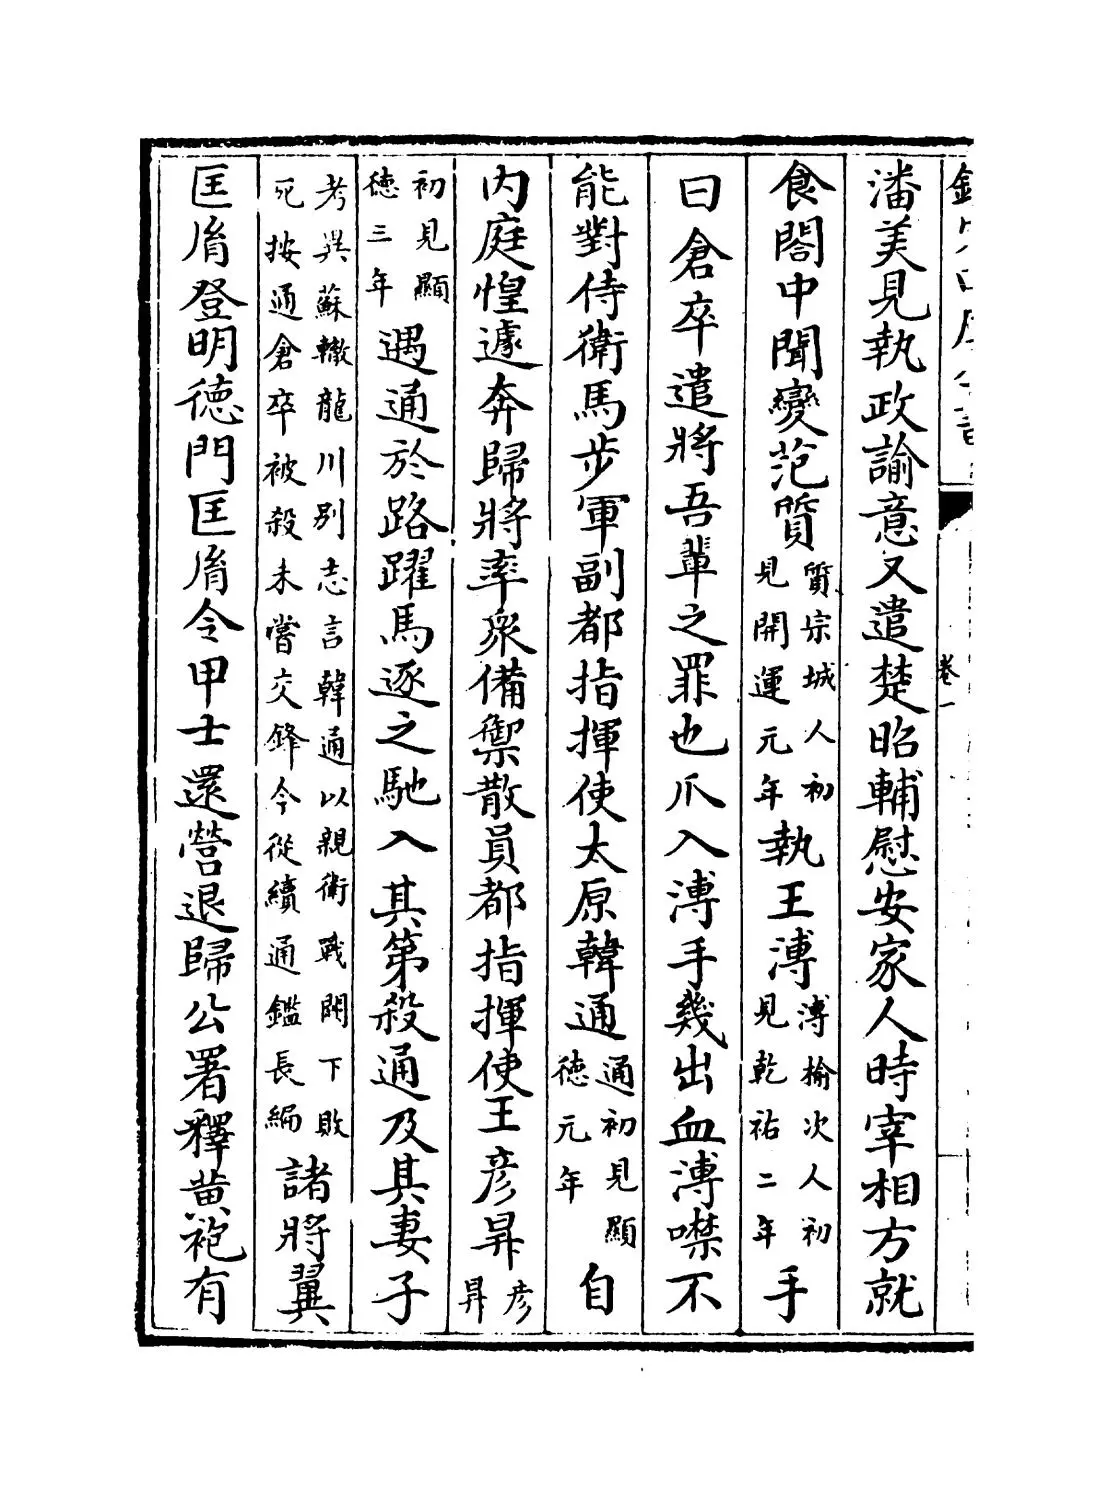 潘美見執政諭意又遣楚昭輔慰安家人時宰相方就
食閤中聞變范質質宗城人初見開運元年執王溥溥榆次人初見乾祐二年手
曰倉卒遣將吾輩之罪也爪入溥手幾出血溥噤不
能對侍衛馬步軍副都指揮使太原韓通通初見顯徳元年自
内庭惶遽奔歸將率衆備禦散員都指揮使王彦昇彦昇
初見顯徳三年遇通於路躍馬逐之馳入其第殺通及其妻子
考異蘇轍龍川别志言韓通以親衛戰闕下敗死按通倉卒被殺未嘗交鋒今從續通鑑長編諸將翼
匡胤登明徳門匡胤令甲士還營退歸公署釋黄袍有
卷一